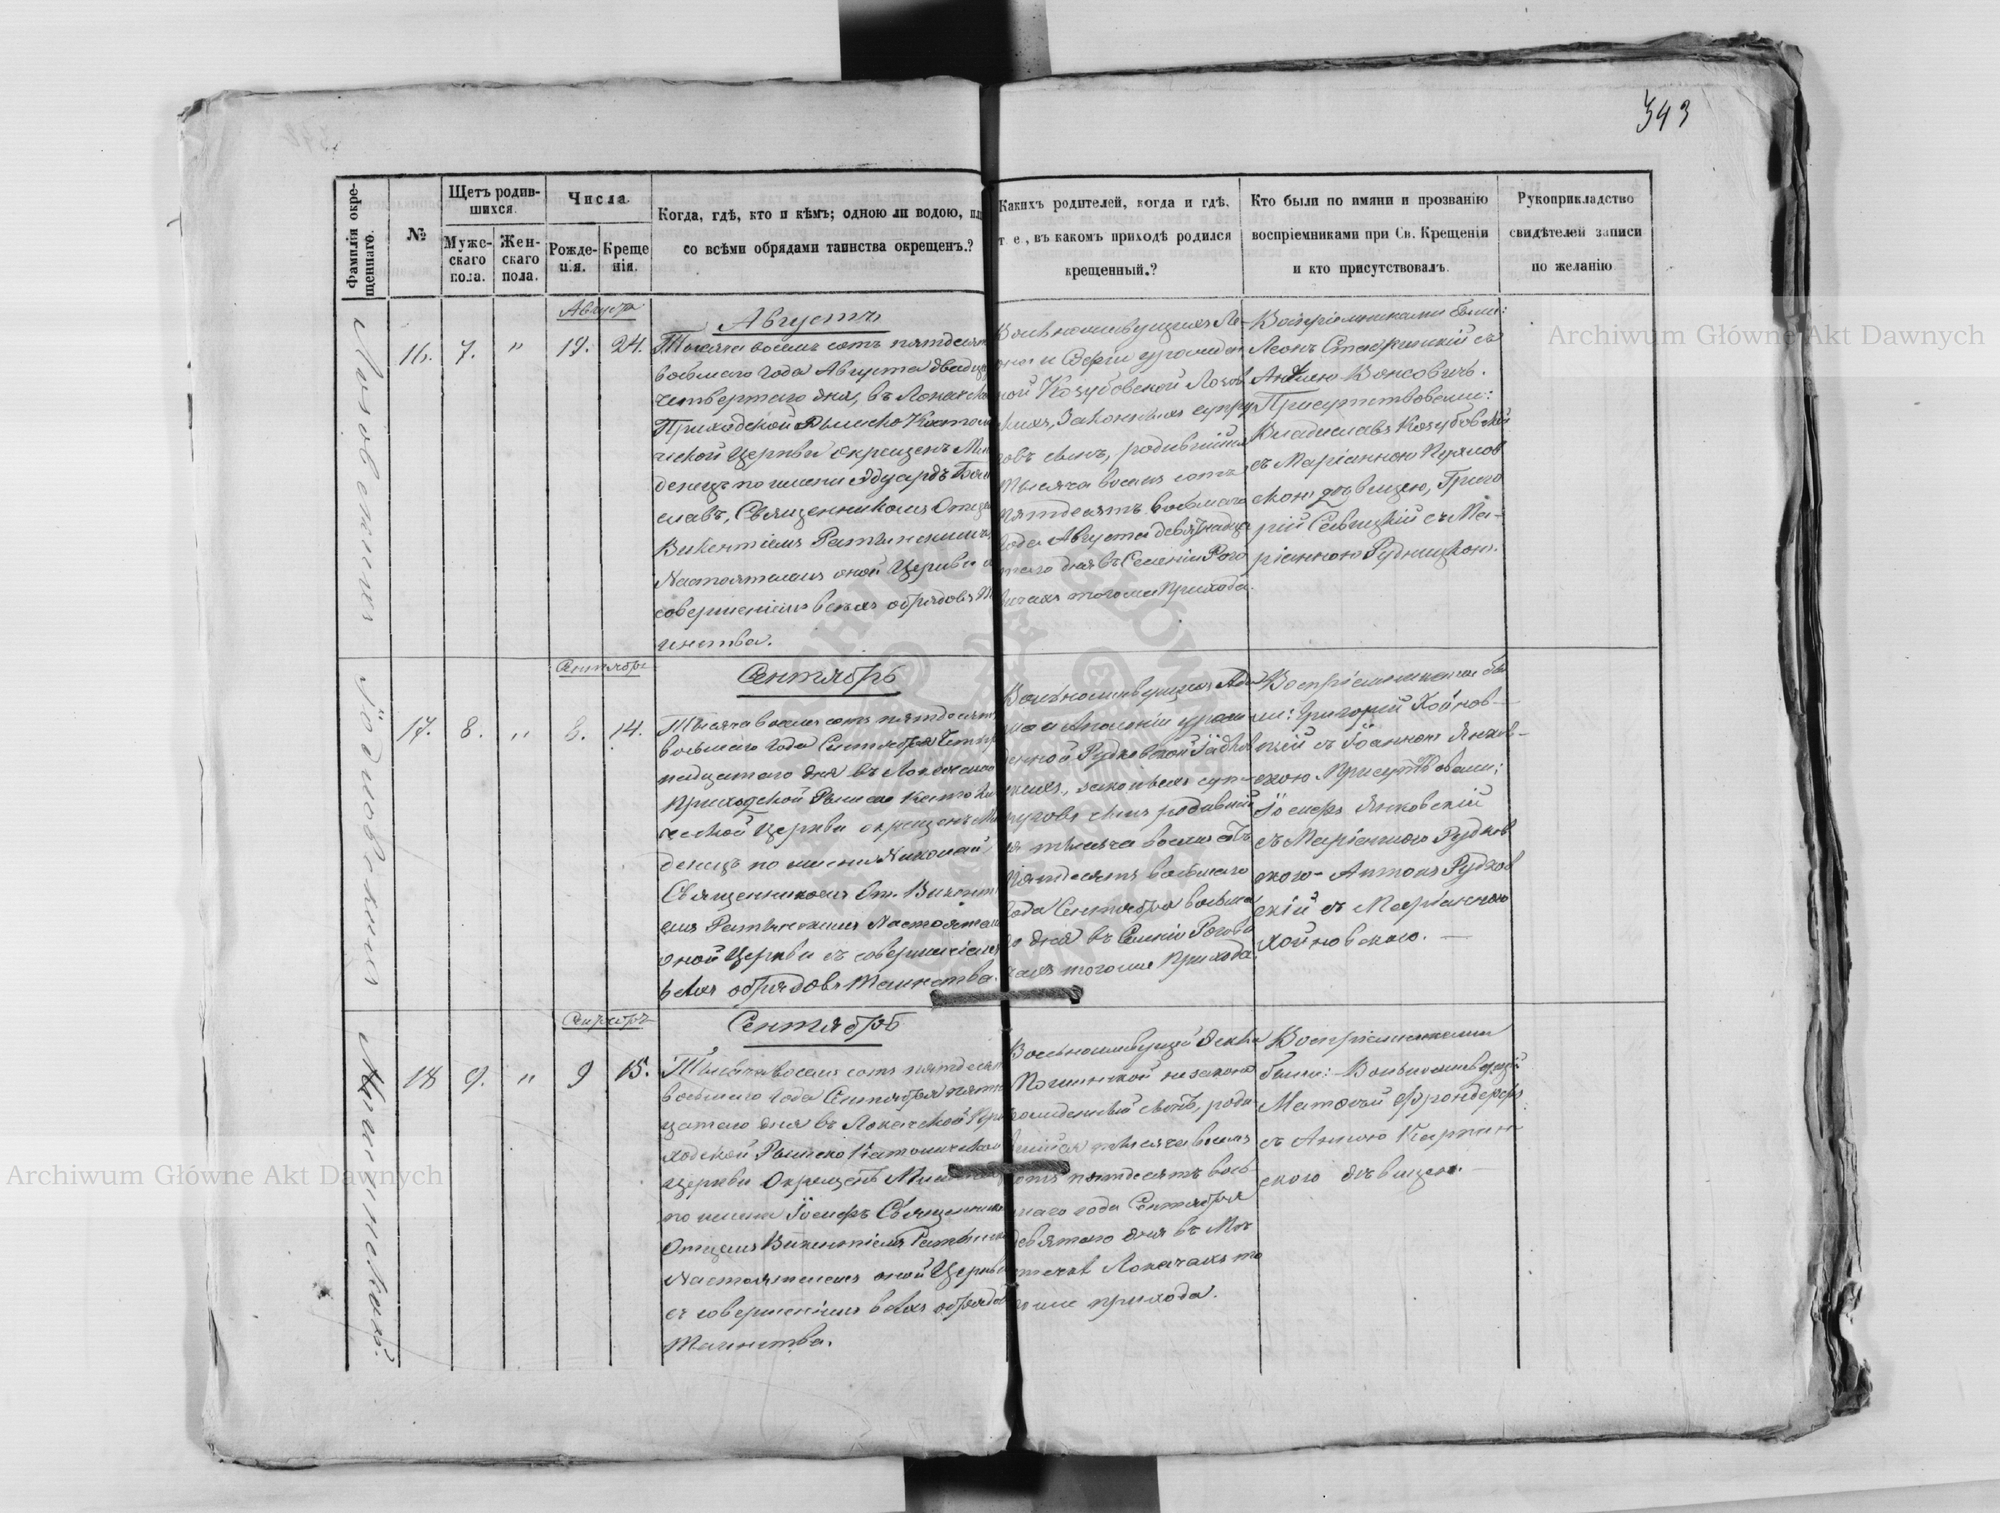 543
Archiwum Główne Akt Dawnych
Фамилія окре-
щеннаго.
№
Щетъ родив-
шихся.
Муже-
скаго
пола.
Жен-
скаго
пола.
Числа.
Рожде-
нія.
Креще
нія.
Когда, гдѣ, кто и кѣмъ; одною ли водою, или
со всѣми обрядами таинства окрещенъ.?
Каихъ родителей, когда и гдѣ,
т. е., въ какомъ приходѣ родился
крещенный.?
Кто были по имяни и прозванію
воспріемниками при Св. Крещеніи
и кто присутствовалъ.
Рукоприкладство
свидѣтелей записи
по желанію
Августа
16. 7. " 19. 24.
Августъ
Тысяча восемь сотъ пятдесятъ
восьмаго года Августа двадц
четвертаго дня, въ Локачской
Приходской Римско Католи
ческой Церкви окрещенъ Мла
денецъ по имени Эдуардъ
славъ, Священникомъ Отцемъ
Викентіемъ
Настоятелемъ оной Церкви съ
совершеніемъ всехъ обрядовъ Та
инства.
Вольноживущихъ Ле-
она и Софіи урожден
ной Козубовской
скихъ, Законныхъ супру
говъ сынъ, родившійся
тысяча восемь сотъ
пятдесятъ восьмаго
года Августа девятнадца
таго дня въ Селеніи Рого
вичахъ тогоже Прихода.
Воспріемниками были:
Леонъ съ
Анною
Присутствовали:
Владиславъ Козубовскій
съ Маріанною
скою дѣвицею, Григо
рій съ Ма-
ріанною Рудницкою.
Сентября
17. 8. " 8. 14.
Сентябрь
Тысяча восемь сотъ пятдесятъ
восьмаго года Сентября четыр
надцатаго дня въ Локачской
Приходской Римско Католи
ческой Церкви окрещенъ Мла
денецъ по имени Николай,
Священникомъ От. Викенті
емъ Настоятелемъ
оной Церкви съ совершеніемъ
всѣхъ обрядовъ Таинства.
Вольноживущихъ
и урож
денной Рудковской
скихъ, законныхъ суп-
руговъ сынъ родившій
ся тысяча восемь сотъ
пятдесятъ восьмаго
года Сентября восьма
го дня въ Селеніи Рогови
чахъ тогоже Прихода.
Воспріемниками бы
ли: Григорій Хойнов-
скій съ Іоанною Янков-
скою Присутствовали:
Іосифъ Янковскій
съ Маріанною Рудков
скою - Антонъ Рудков
скій съ Маріанною
Хойновскою. —
Сентября
18 9. " 9 15.
Сентябрь
Тысяча восемь сотъ пятдесятъ
восьмаго года Сентября пятнад
цатаго дня въ Локачской При
ходской Римско Католической
Церкви Окрещенъ Младенецъ
по имени Іосифъ Священникомъ
Отцемъ Викентіемъ
Настоятелемъ оной Церкви
съ совершеніемъ всѣхъ обрядовъ
Таинства.
Вольноживущей
незакон
норожденный сынъ, роди
вшійся тысяча восемь
сотъ пятдесятъ вось
маго года Сентября
девятаго дня въ Мѣ
стечкѣ Локачахъ то
гоже прихода.
Воспріемниками
были: Вольноживущій
Матвѣй
съ Анною
скою дѣвицею. —
Archiwum Główne Akt Dawnych